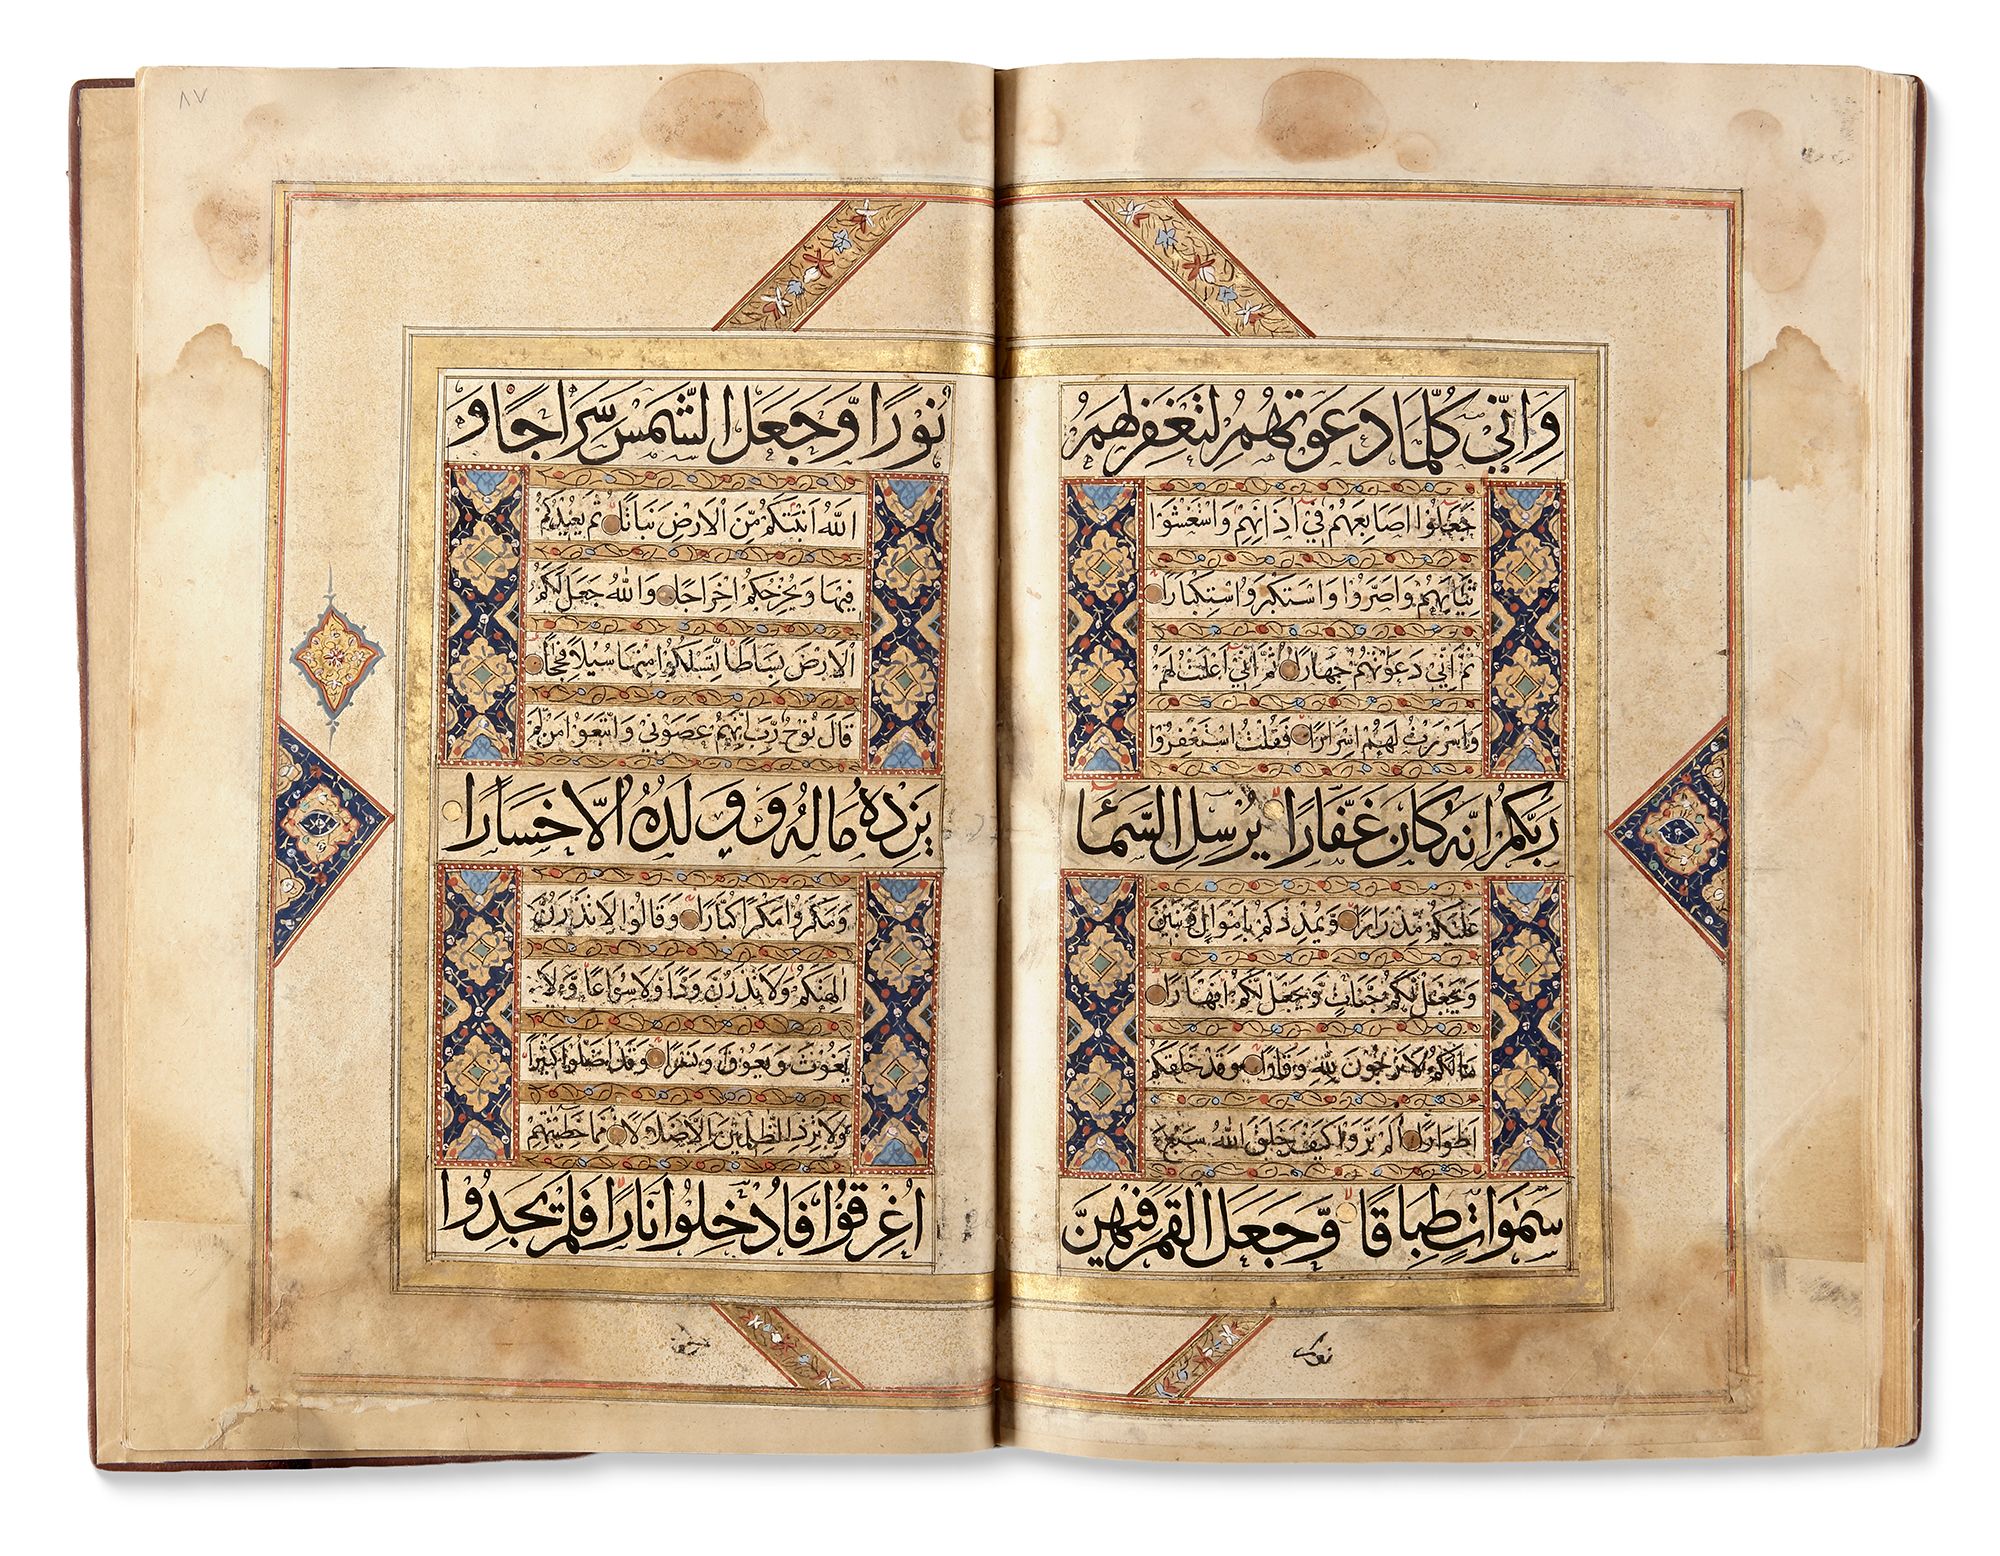 وَاِنّي كُلَّمَا دَعَوتهُمْ لتَغفرلهمُ
جَعَلُوا اصَابعَهُم في اذَانِهم وَاسْتَغشَوْا
ثيَابَهُمْ وَاصَرّوُا وَاسْتكبَروُا اسْتِكبَارًا
ثمّ اِنّي دَعَوْتهُم جِهَارًا ثمّ اِنّي اَعْلنتُ لهمْ
وَاسْرَرتُ لَهُم اِسْرَارًا فَقُلتُ اسْتَغفِرُوْا
رَبكمُ انّهُ كَانَ غَفّارًا يُرْسِلِ السَّمَآءَ
عَليْكمْ مِدْرَارًا وَّيُمدِدْكمْ بِاَموَالٍ وَّبَنينَ
وَيَجْعَل لَكمْ جَنّاتٍ وَيَجعَل لَكمْ اَنهَارًا
مَالكمُ لَا ترجُونَ لِلّٰهِ وَقَارًا وَقَدْ خَلقكمْ
اَطوَارًا الَمْ تَرَوْا كيفَ خَلقَ اللّٰهُ سَبْعَ
سَمٰوَاتٍ طِبَاقًا وَّجَعَلَ القمَرَ فيْهِنّ
نُوْرًا وَّجَعَلَ الشَّمسَ سِرَاجًا وَ
اللّٰهُ اَنبَتكمْ مِّنَ الاَرْضِ نبَاتًا ثمّ يعِيْدُكمْ
فيْهَا وَيُخرِجُكمْ اِخرَاجًا وَاللّٰهُ جَعَلَ لَكمُ
الاَرْضَ بسَاطًا لِّتَسْلكُوا مِنهَا سُبُلاً فِجَاجًا
قَالَ نُوْحٌ رَّبِّ اِنّهُمْ عَصَوْني وَاتّبَعَوْا مَن لّمْ
يَزدْهُ مَالهُ وَوَلَدُهُ اِلاّ خسَارًا
وَمَكرُوا مَكرًا كبّارًا وَقَالُوْا لَا تَذَرُنَّ
اٰلِهَتكمْ وَلَا تَذَرُنَّ وَدًّا وَلَا سُوَاعًا وَّلَا
يَغُوْثَ وَيَعُوْقَ وَنَسْرًا وَقَدْ اَضَلّوْا كَثيْرًا
وَلَا تزِدِ الظّٰلِميْنَ اِلَّا ضَلَالًا مِمَّا خَطِيْئٰتِهِمْ
اُغْرِقُوْا فَاُدْخِلوُا نَارًا فَلَمْ يَجدُوْا
٨٧